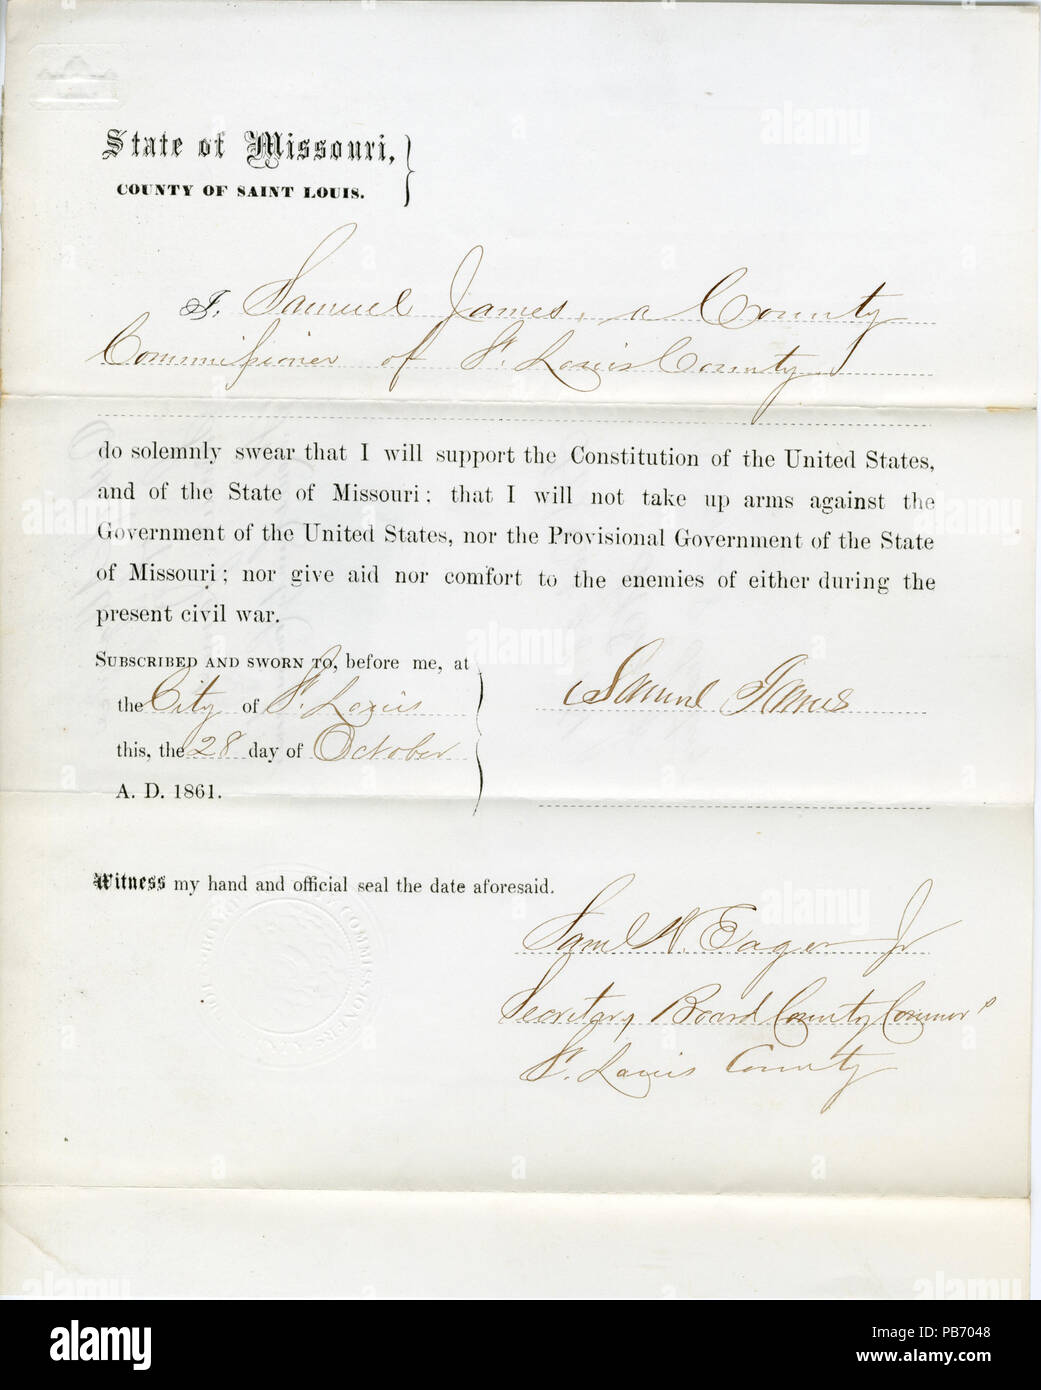 State of Missouri,
COUNTY OF SAINT LOUIS.
I, Samuel James, a County
Commissioner of St. Louis County
do solemnly swear that I will support the Constitution of the United States,
and of the State of Missouri; that I will not take up arms against the
Government of the United States, nor the Provisional Government of the State
of Missouri; nor give aid nor comfort to the enemies of either during the
present civil war.
SUBSCRIBED AND SWORN TO, before me, at
the City of St. Louis
this, the 28 day of October
A. D. 1861.
Samuel James
Witness my hand and official seal the date aforesaid.
Saml N. Eager Jr
Secretary Board County Commrs
St. Louis County
alamy
Image ID: PB7048
www.alamy.com